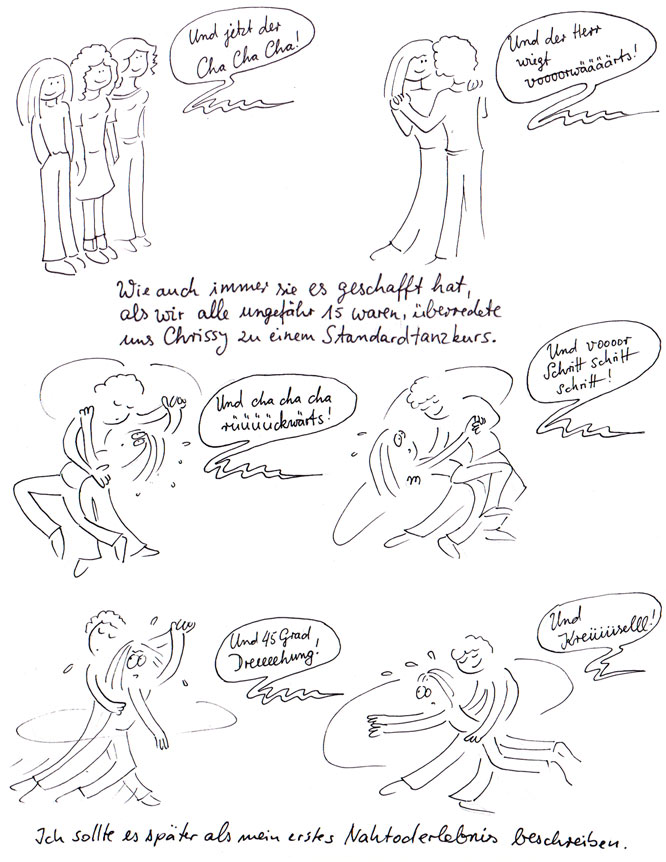 Und jetzt der
Cha Cha Cha!
Und der Herr
wiegt
voooorwääääärts!
Wie auch immer sie es geschafft hat,
als wir alle ungefähr 15 waren, überredete
uns Chrissy zu einem Standardtanzkurs.
Und cha cha cha
rüüüüückwärts!
Und voooor
Schritt Schritt
Schritt!
Und 45 Grad
Dreeeeehung!
Und
Kreiüüüiselll!
Ich sollte es später als mein erstes Nahtoderlebnis beschreiben.